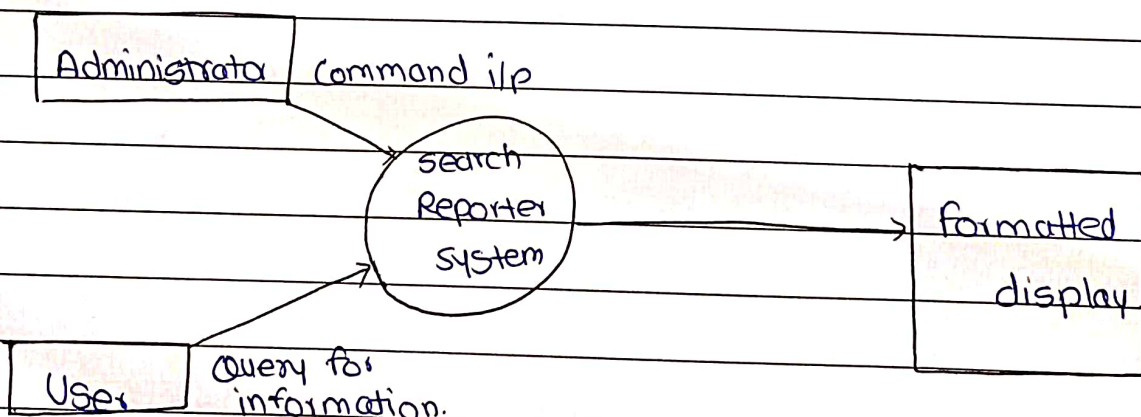 Administrator
command i/p
search
Reporter
system
formatted
display
User
Query for
information.